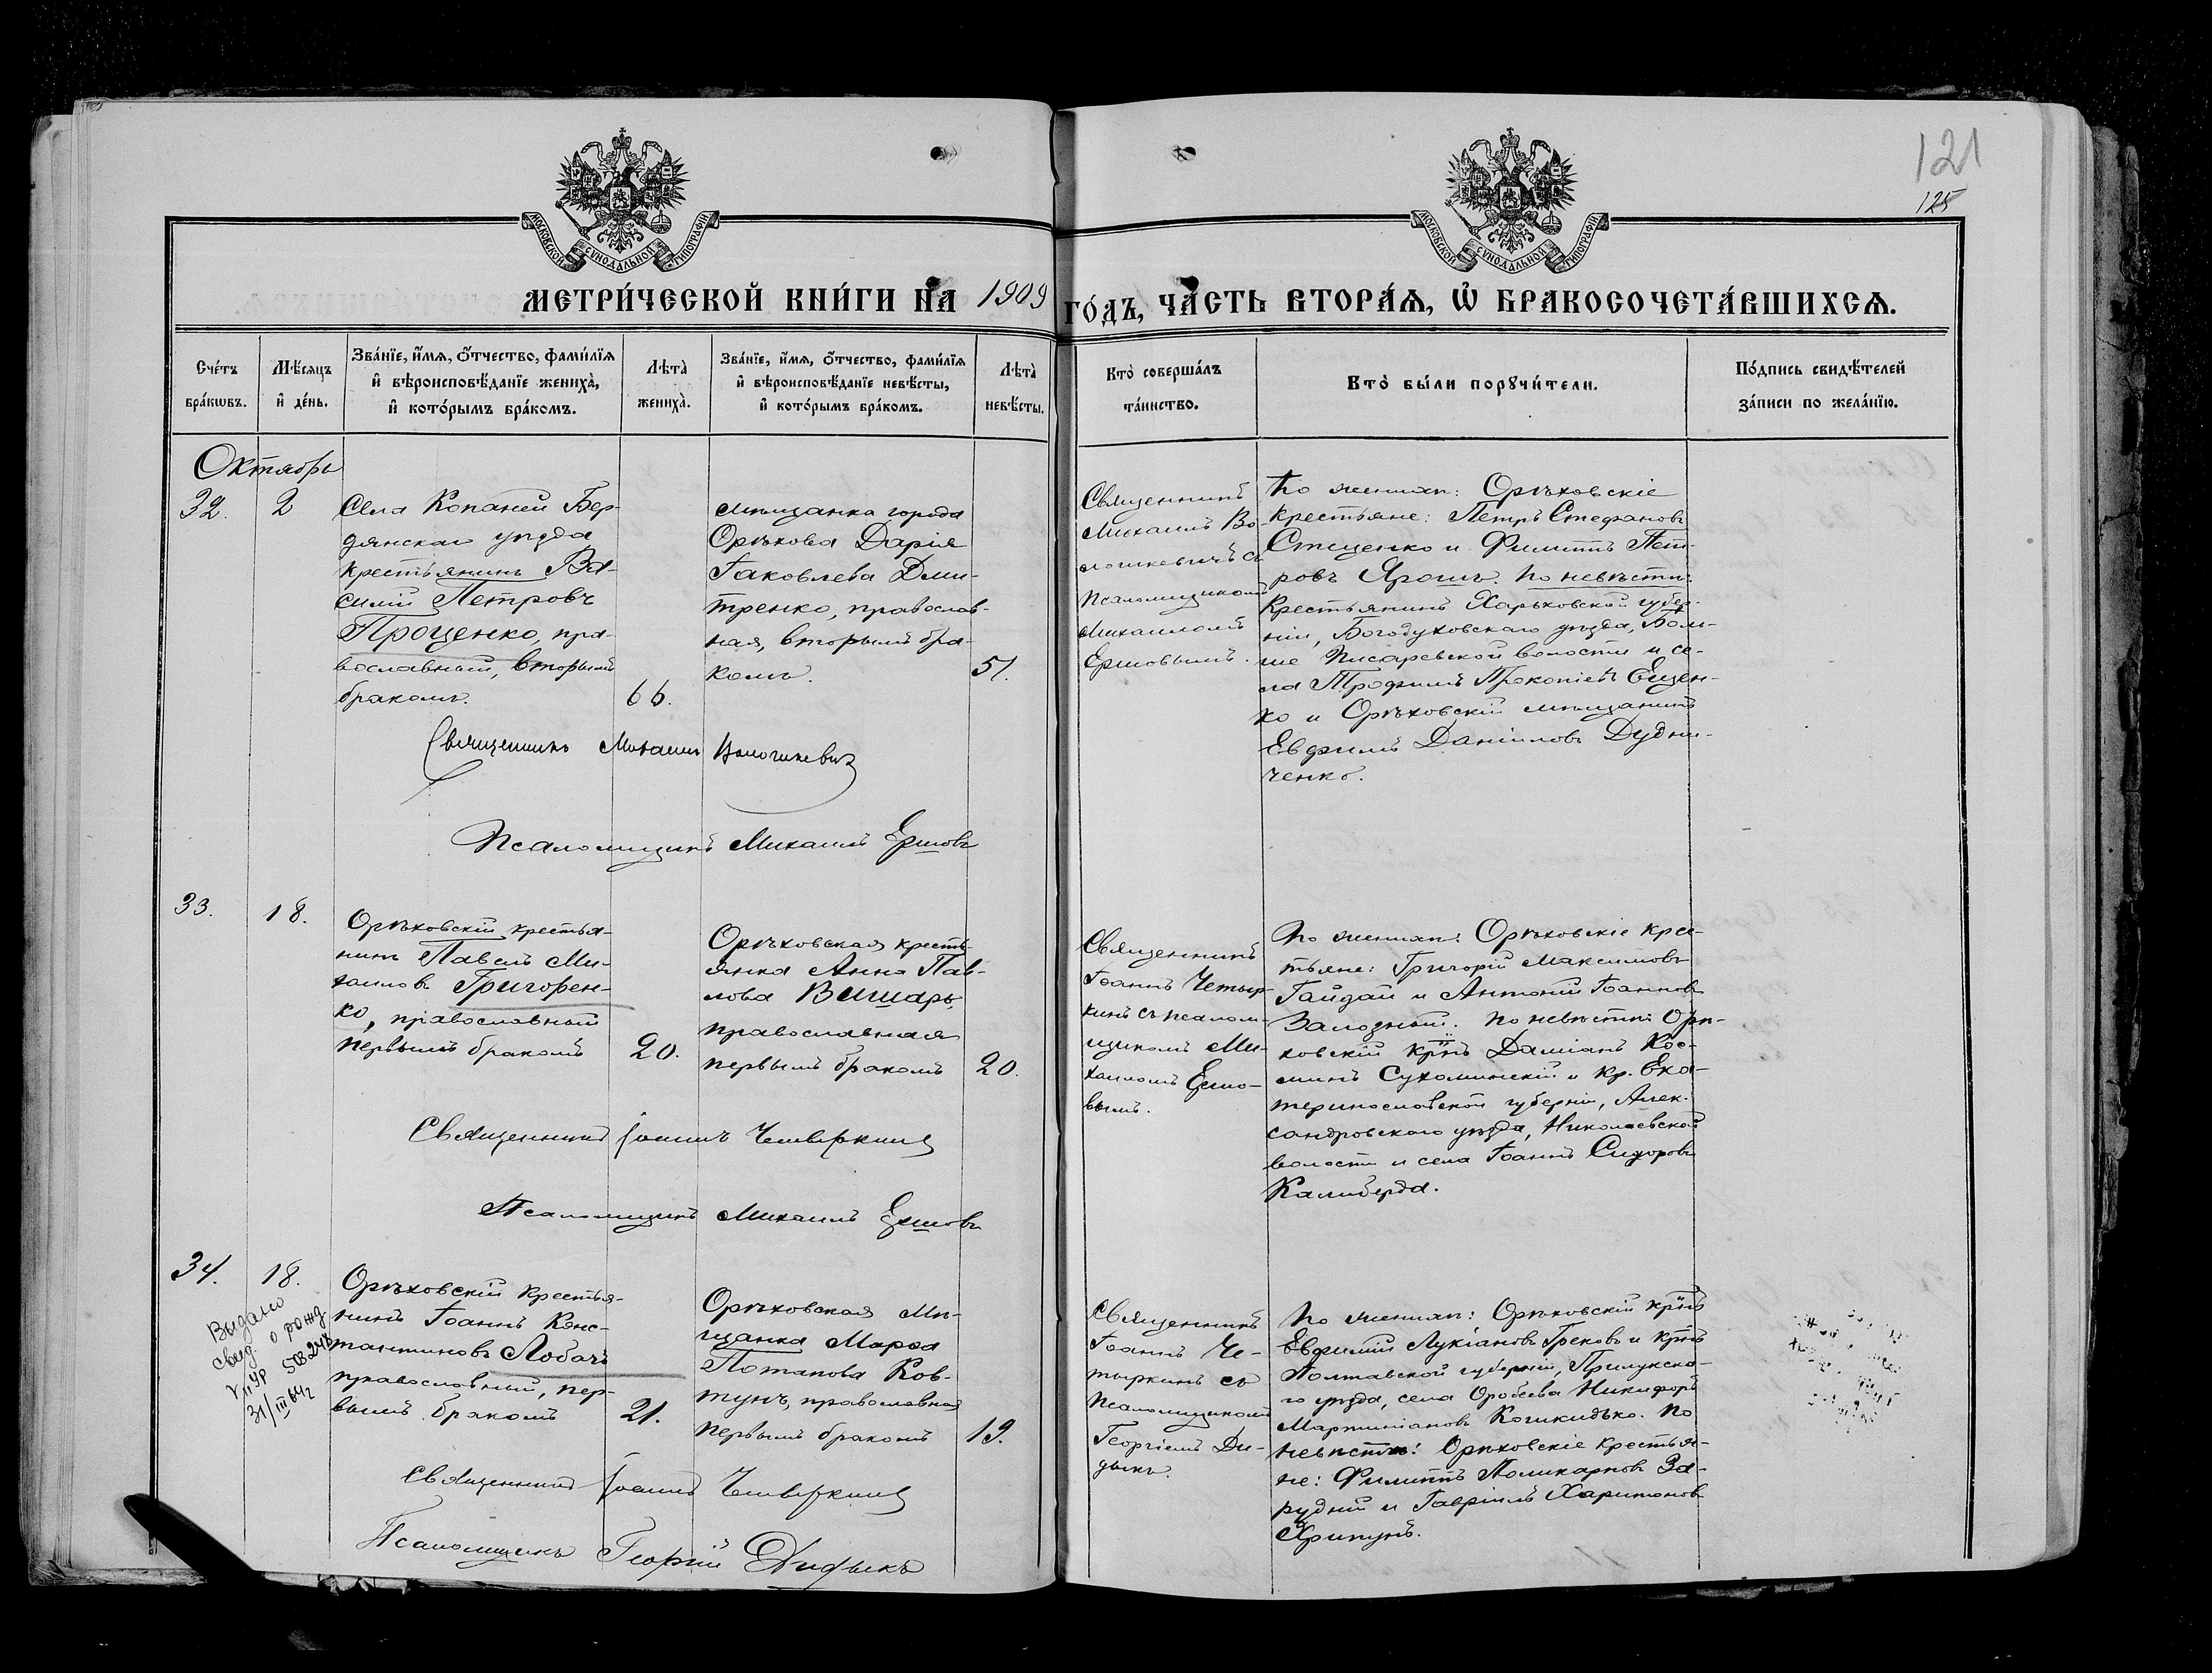 121
125
МОСКОВСКОЙ СУНОДАЛЬНОЙ ТИПОГРАФІИ
МОСКОВСКОЙ СУНОДАЛЬНОЙ ТИПОГРАФІИ
МЕТРИ́ЧЕСКОЙ КНИ́ГИ НА 1909 ГО́ДЪ, ЧА́СТЬ ВТОРА́Ѧ, Ѡ҆ БРАКОСОЧЕТА́ВШИХСѦ.
Сче́тъ бра́кѡвъ.
Мѣ́сяцъ и҆ де́нь.
Зва́нїе, и҆́мѧ, ѻ҆́тчество, фами́лїѧ
и҆ вѣроисповѣ́данїе жениха̀,
и҆ кото́рымъ бра́комъ.
Лѣта̀ жениха̀.
Зва́нїе, и҆́мѧ, ѻ҆́тчество, фами́лїѧ
и҆ вѣроисповѣ́данїе невѣ́сты,
и҆ кото́рымъ бра́комъ.
Лѣта̀ невѣ́сты.
Кто̀ соверша́лъ
та́инство.
Кто̀ бы́ли порꙋчи́тели.
По́дпись свидѣ́телей
за́писи по жела́нїю.
Октябрь
32.
2
Села Копаней Бер-
дянскаго уѣзда
крестьянинъ Ва-
силій Петровъ
Проценко, пра-
вославный, вторымъ
бракомъ.
66.
мѣщанка города
Орѣхова Дарія
Іаковлева Дми-
тренко, православ-
ная, вторымъ бра-
комъ.
51.
Священникъ
Михаилъ Во-
лошкевичъ съ
псаломщикомъ
Михаиломъ
Ершовымъ.
По женихѣ: Орѣховскіе
крестьяне: Петръ Стефановъ
Стеценко и Филиппъ Пет-
ровъ Ярошъ. По невѣстѣ:
Крестьянинъ Харьковской губер-
ніи, Богодуховскаго уѣзда, Боль-
ше Писаревской волости и се-
ла Трофимъ Прокопіевъ Ещен-
ко и Орѣховскій мѣщанинъ
Евфимъ Даніиловъ Дудни-
ченко.
Священникъ Михаилъ Волошкевичъ
Псаломщикъ Михаилъ Ершовъ
33.
18.
Орѣховскій крестья-
нинъ Павелъ Ми-
хаиловъ Григорен-
ко, православный
первымъ бракомъ
20.
Орѣховская кресть-
янка Анна Пав-
лова Вишарь,
православная
первымъ бракомъ
20.
Священникъ
Іоаннъ Четыр-
кинъ съ псалом-
щикомъ Ми-
хаиломъ Ершо-
вымъ.
По женихѣ: Орѣховскіе крес-
тьяне: Григорій Максимовъ
Гайдай и Антоній Іоанновъ
Залозный. По невѣстѣ: Орѣ-
ховскій крнъ Даміанъ Кос-
минъ Сухоминскій и кр. Ека-
теринославской губерніи, Алек-
сандровскаго уѣзда, Николаевской
волости и села Іоаннъ Сидоровъ
Калиберда.
Священникъ Іоаннъ Четыркинъ
Псаломщикъ Михаилъ Ершовъ
34.
18.
Выдано
свид. о рожд.
31/III 64 г
Орѣховскій крестья-
нинъ Іоаннъ Конс-
тантиновъ Лобачъ
православный, пер-
вымъ бракомъ
21.
Орѣховская мѣ-
щанка Марѳа
Потапова Ков-
тунъ, православная
первымъ бракомъ
19.
Священникъ
Іоаннъ Че-
тыркинъ съ
псаломщикомъ
Георгіемъ Ди-
дыкъ.
По женихѣ: Орѣховскій крнъ
Евфимій Лукіановъ Грековъ и крнъ
Полтавской губерніи, Прилукска-
го уѣзда, села Никифоръ
Мартиніановъ По
невѣстѣ: Орѣховскіе крестья-
не: Филиппъ Поликарповъ За-
рудній и Гавріилъ Харитоновъ
Хрипунъ.
Священникъ Іоаннъ Четыркинъ
Псаломщикъ Георгій Дидыкъ